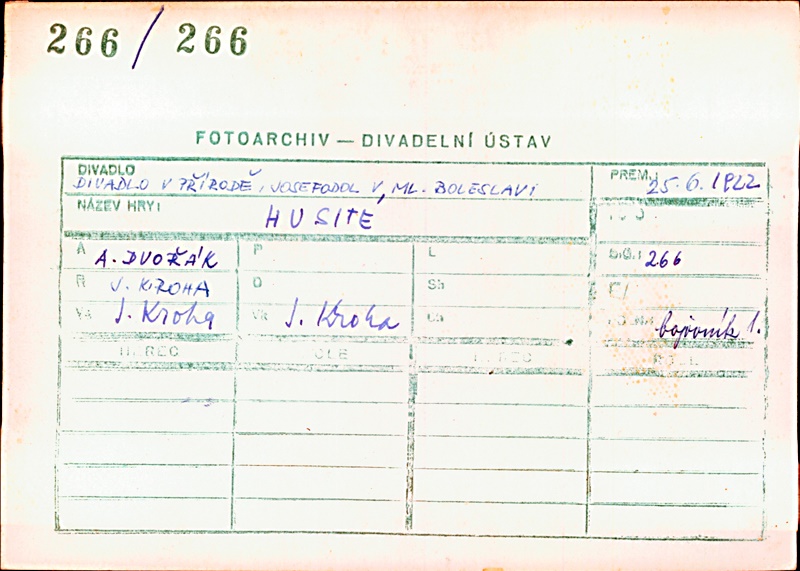 266 / 266
FOTOARCHIV — DIVADELNÍ ÚSTAV
DIVADLO
DIVADLO V PŘÍRODĚ, JOSEFODOL V ML. BOLESLAVI
PREM.: 25. 6. 1922
NÁZEV HRY: HUSITÉ
A A. DVOŘÁK P L SIG.: 266
R J. KROHA D Sh
Va J. Kroha Vk J. Kroha Ch bojovník 1.
H. REC CLE H. REC